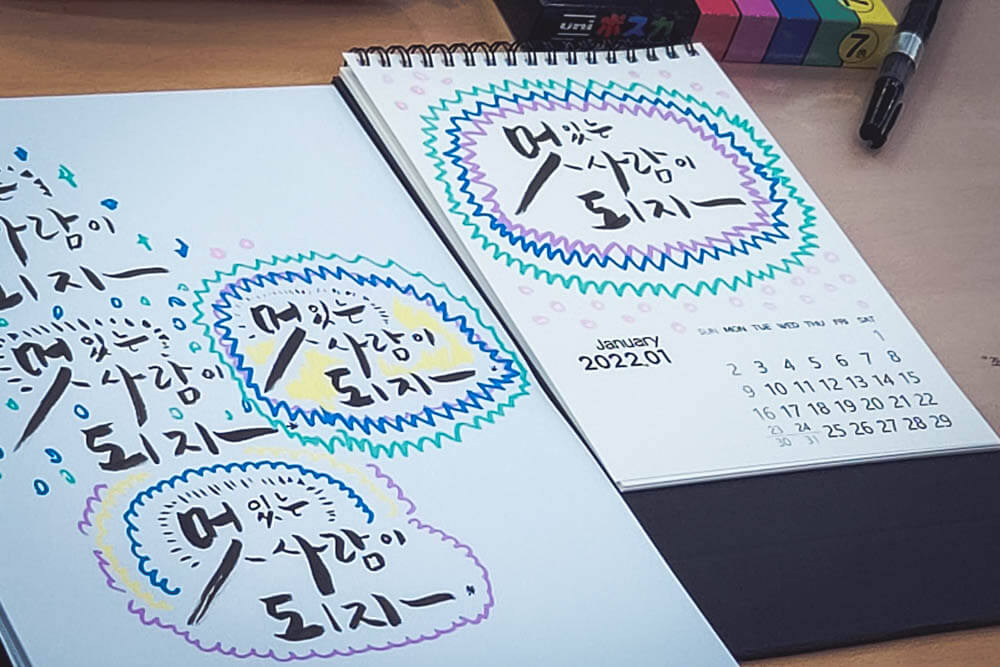 uni ポスカ
7
멋있는
사람이
되자
January
2022.01
SUN MON TUE WED THU FRI SAT
1
2 3 4 5 6 7 8
9 10 11 12 13 14 15
16 17 18 19 20 21 22
23 24 25 26 27 28 29
30 31
는
사람이
되자
멋있는
사람이
되자
멋있는
사람이
되자
멋있는
사람이
되자